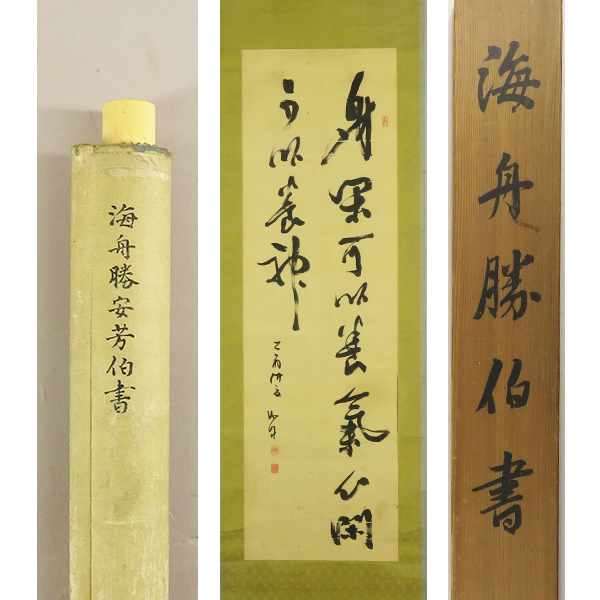 海舟勝安芳伯書
身閑可以養氣心閑
可以養神
乙酉仲夏 海舟
海舟勝伯書